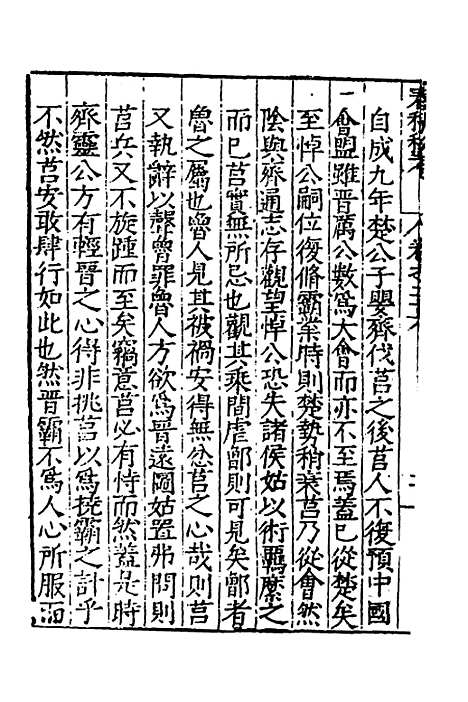 自成九年楚公子嬰齊伐莒之後莒人不復預中國
會盟雖晉萬公數爲大會而亦不至焉蓋已從楚矣
至悼公嗣位復脩霸業時則楚勢稍衰莒乃從會然
陰與齊通志存觀望悼公恐失諸侯姑以術羈縻之
而已莒實無所忌也觀其乘間虐鄫則可見矣鄫者
魯之屬也魯人見其被禍安得無忿莒之心哉則莒
又執辭以聲魯罪魯人方欲爲晉遠圖姑置弗問則
莒兵又不旋踵而至矣竊意莒必有恃而然蓋是時
齊靈公方有輕晉之心得非挑莒以爲撓霸之計乎
不然莒安敢肆行如此也然晉霸不爲人心所服而